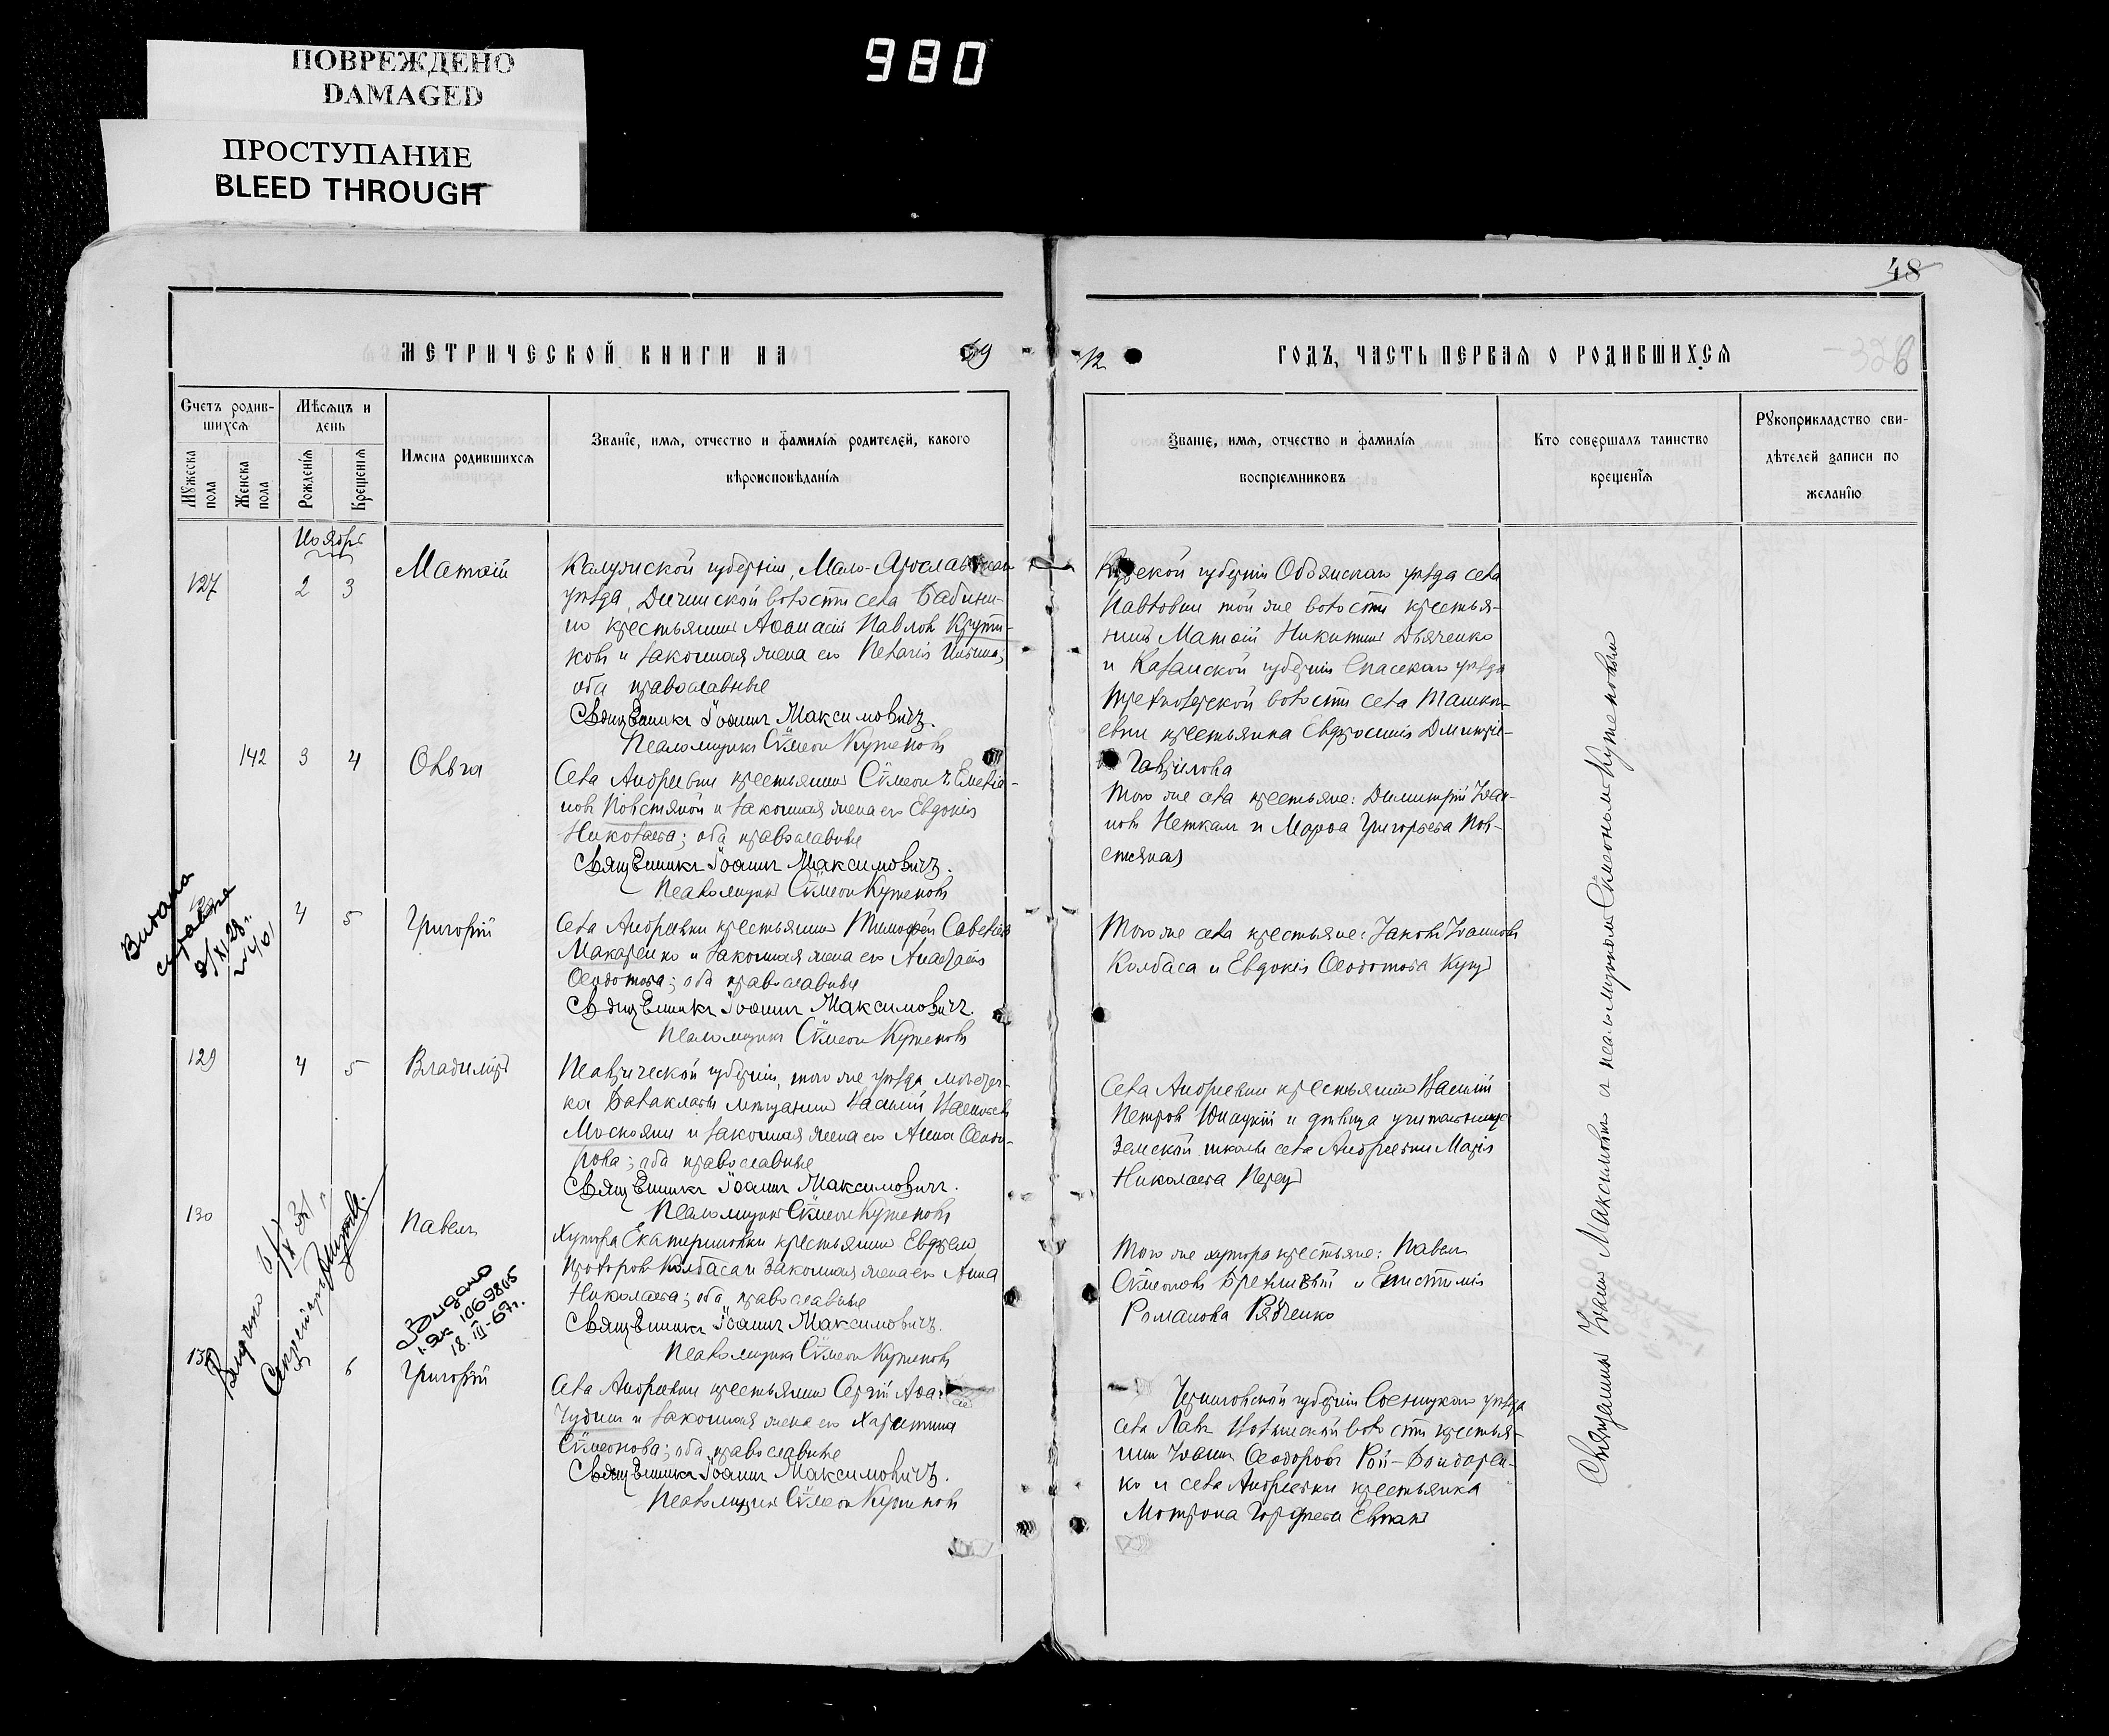 980
ПОВРЕЖДЕНО
DAMAGED
ПРОСТУПАНИЕ
BLEED THROUGH
48
МЕТРИЧЕСКОЙ КНИГИ НА 19
12 ГОДЪ, ЧАСТЬ ПЕРВАЯ О РОДИВШИХСЯ
326
Счетъ родив-
шихся
Мужеска
пола
Женска
пола
Мѣсяцъ и
день
Рожденія
Крещенія
Имена родившихся
Званіе, имя, отчество и фамилія родителей, какого
вѣроисповѣданія
Званіе, имя, отчество и фамилія
воспріемниковъ
Кто совершалъ таинство
крещенія
Рукоприкладство сви-
дѣтелей записи по
желанію
Ноябрь
127
2 3
Матѳій
Калужской губерніи, Мало-Ярославецкаго
уѣзда, волости села Бабичи-
но крестьянинъ Аѳанасій Павловъ Крути-
ковъ и законная жена его Пелагія
оба православные
Священникъ Іоаннъ Максимовичъ.
Псаломщикъ Сѵмеонъ Кутеповъ
Курской губерніи Обоянскаго уѣзда села
Павловки той же волости крестья-
нинъ Матѳій Никитинъ Дьяченко
и Казанской губерніи Спасскаго уѣзда
волости села
крестьянка Евфросинія Димитріе-
Гаврилова
142
3 4
Ольга
Села Андреевки крестьянинъ Сѵмеонъ Емелья-
новъ Повстяной и законная жена его Евдокія
Николаева; оба православные
Священникъ Іоаннъ Максимовичъ.
Псаломщикъ Сѵмеонъ Кутеповъ
Того же села крестьяне: Димитрій Іоан-
новъ и Марѳа Григорьева Пов-
стяная
Видана
справка
4 5
Григорій
Села Андреевки крестьянинъ Тимофей Савельевъ
Макаренко и законная жена его Анастасія
Ѳеодотова; оба православные
Священникъ Іоаннъ Максимовичъ.
Псаломщикъ Сѵмеонъ Кутеповъ
Того же села крестьяне: Іаковъ Іоанновъ
Колбаса и Евдокія Ѳеодотова
129
4 5
Владиміръ
Таврической губерніи, того же уѣзда, мѣстеч-
ка Балаклавы мѣщанинъ Василій Васильевъ
и законная жена его Анна Ѳеодо-
рова; оба православные
Священникъ Іоаннъ Максимовичъ.
Псаломщикъ Сѵмеонъ Кутеповъ
Села Андреевки крестьянинъ Василій
Петровъ и дѣвица учительница
Земской школы села Андреевки Марія
Николаева
130
Павелъ
Хутора Екатериновки крестьянинъ Евфремъ
Колбаса и законная жена его Анна
Николаева; оба православные
Священникъ Іоаннъ Максимовичъ.
Псаломщикъ Сѵмеонъ Кутеповъ
Того же хутора крестьяне: Павелъ
Сѵмеоновъ и Епистимія
Романова Рябченко
Видано
Видано
1069805
18.III-67г.
6
Григорій
Села Андреевки крестьянинъ Сергій
Чудинъ и законная жена его Харитина
Сѵмеонова; оба православные
Священникъ Іоаннъ Максимовичъ.
Псаломщикъ Сѵмеонъ Кутеповъ
Черниговской губерніи Сосницкаго уѣзда
села волости крестья-
нинъ Іоаннъ Ѳеодоровъ Рой-Бондарен-
ко и села Андреевки крестьянка
Мотрона
Священникъ Іоаннъ Максимовичъ и псаломщикомъ Сѵмеономъ Кутеповымъ